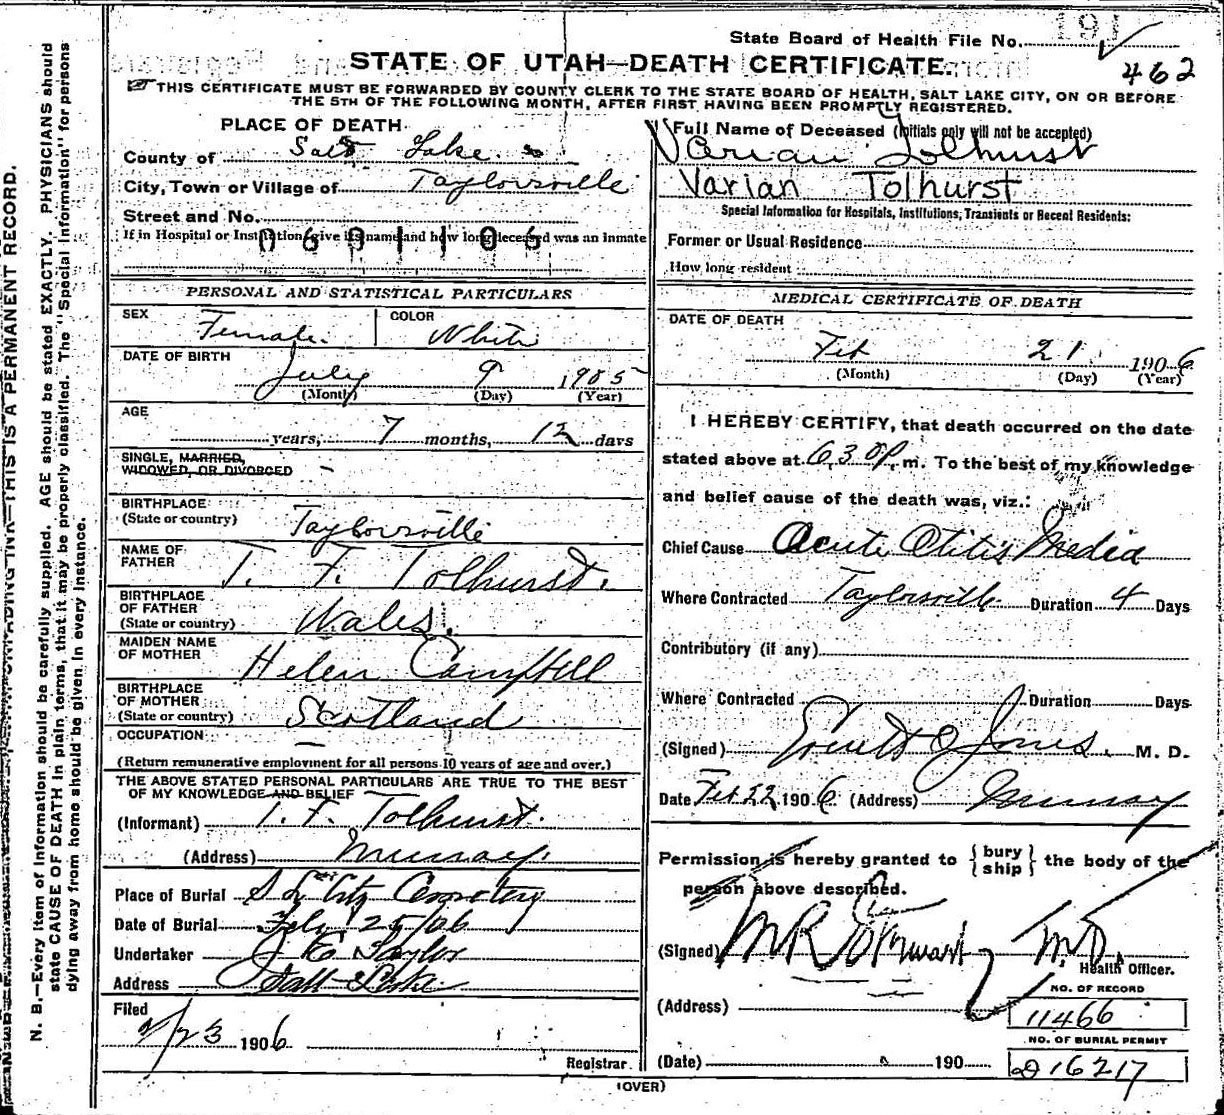 191
State Board of Health File No.
462
STATE OF UTAH—DEATH CERTIFICATE.
THIS CERTIFICATE MUST BE FORWARDED BY COUNTY CLERK TO THE STATE BOARD OF HEALTH, SALT LAKE CITY, ON OR BEFORE
THE 5TH OF THE FOLLOWING MONTH, AFTER FIRST HAVING BEEN PROMPTLY REGISTERED.
PLACE OF DEATH
County of Salt Lake
City, Town or Village of Taylorsville
Street and No.
If in Hospital or Institution give its name and how long deceased was an inmate
0601106
PERSONAL AND STATISTICAL PARTICULARS
SEX Female. COLOR White
DATE OF BIRTH
July 9 1905
(Month) (Day) (Year)
AGE
years, 7 months, 12 days
SINGLE, MARRIED,
WIDOWED, OR DIVORCED -
BIRTHPLACE
(State or country) Taylorsville
NAME OF
FATHER T. F. Tolhurst.
BIRTHPLACE
OF FATHER
(State or country) Wales.
MAIDEN NAME
OF MOTHER Helen Campbell
BIRTHPLACE
OF MOTHER
(State or country) Scotland
OCCUPATION —
(Return remunerative employment for all persons 10 years of age and over.)
THE ABOVE STATED PERSONAL PARTICULARS ARE TRUE TO THE BEST
OF MY KNOWLEDGE AND BELIEF
(Informant) T. F. Tolhurst.
(Address) Murray.
Place of Burial S L City Cemetery
Date of Burial Feb 25/06
Undertaker J E Taylor
Address Salt Lake
Filed
2/23 1906
Registrar.
Full Name of Deceased (Initials only will not be accepted)
Varian Tolhurst
Varian Tolhurst
Special Information for Hospitals, Institutions, Transients or Recent Residents:
Former or Usual Residence
How long resident
MEDICAL CERTIFICATE OF DEATH
DATE OF DEATH
Feb 21 1906
(Month) (Day) (Year)
I HEREBY CERTIFY, that death occurred on the date
stated above at 6.30 P. m. To the best of my knowledge
and belief cause of the death was, viz.:
Chief Cause Acute Otitis Media
Where Contracted Taylorsville Duration 4 Days
Contributory (if any)
Where Contracted Duration Days
(Signed) Jones. M. D.
Date Feb 22 1906. (Address) Murray
Permission is hereby granted to {bury
ship} the body of the
person above described.
(Signed) M R Stewart M.D.
Health Officer.
(Address)
NO. OF RECORD
11466
NO. OF BURIAL PERMIT
(Date) 190
16217
(OVER)
N. B.—Every item of information should be carefully supplied. AGE should be stated EXACTLY. PHYSICIANS should
state CAUSE OF DEATH in plain terms, that it may be properly classified. The "Special Information" for persons
dying away from home should be given in every instance.
UNFADING INK—THIS IS A PERMANENT RECORD.